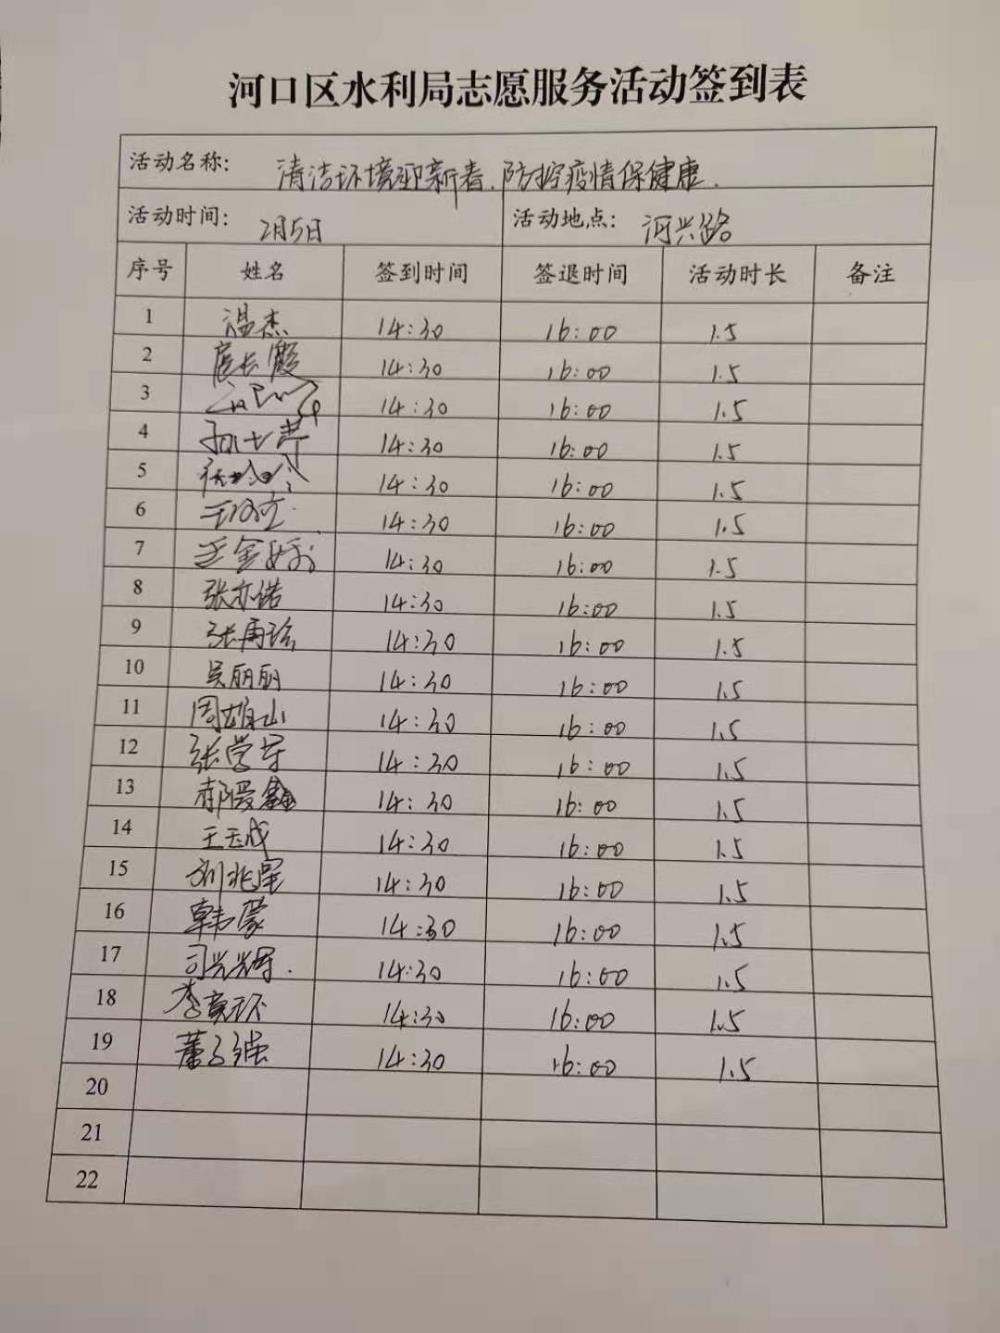 河口区水利局志愿服务活动签到表
活动名称: 清洁环境迎新春.防控疫情保健康.
活动时间: 2月5日 活动地点: 河兴路
序号 姓名 签到时间 签退时间 活动时长 备注
1 温杰 14:30 16:00 1.5
2 扈长霞 14:30 16:00 1.5
3 14:30 16:00 1.5
4 14:30 16:00 1.5
5 14:30 16:00 1.5
6 14:30 16:00 1.5
7 14:30 16:00 1.5
8 张亦诺 14:30 16:00 1.5
9 张 14:30 16:00 1.5
10 吴丽丽 14:30 16:00 1.5
11 周雄山 14:30 16:00 1.5
12 张学军 14:30 16:00 1.5
13 14:30 16:00 1.5
14 王玉成 14:30 16:00 1.5
15 刘兆军 14:30 16:00 1.5
16 韩蒙 14:30 16:00 1.5
17 司兴辉. 14:30 16:00 1.5
18 李 14:30 16:00 1.5
19 萧子强 14:30 16:00 1.5
20
21
22